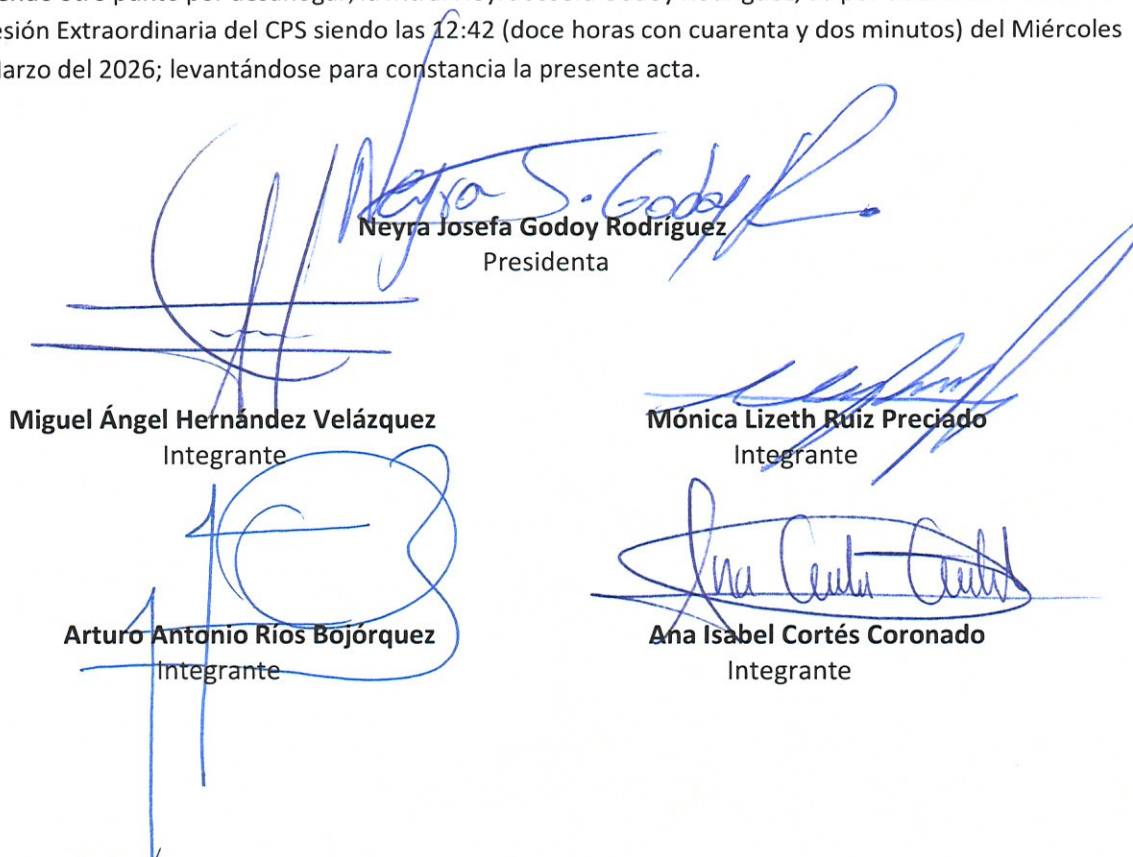 esión Extraordinaria del CPS siendo las 12:42 (doce horas con cuarenta y dos minutos) del Miércoles
Marzo del 2026; levantándose para constancia la presente acta.
Neyra J. Godoy R.
Neyra Josefa Godoy Rodríguez
Presidenta
Miguel Ángel Hernández Velázquez
Integrante
Mónica Lizeth Ruiz Preciado
Integrante
Arturo Antonio Ríos Bojórquez
Integrante
Ana
Ana Isabel Cortés Coronado
Integrante